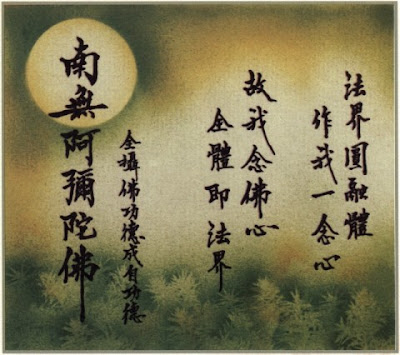 法界圓融體
作我一念心
故我念佛心
全體即法界
全攝佛功德成自功德
南無阿彌陀佛